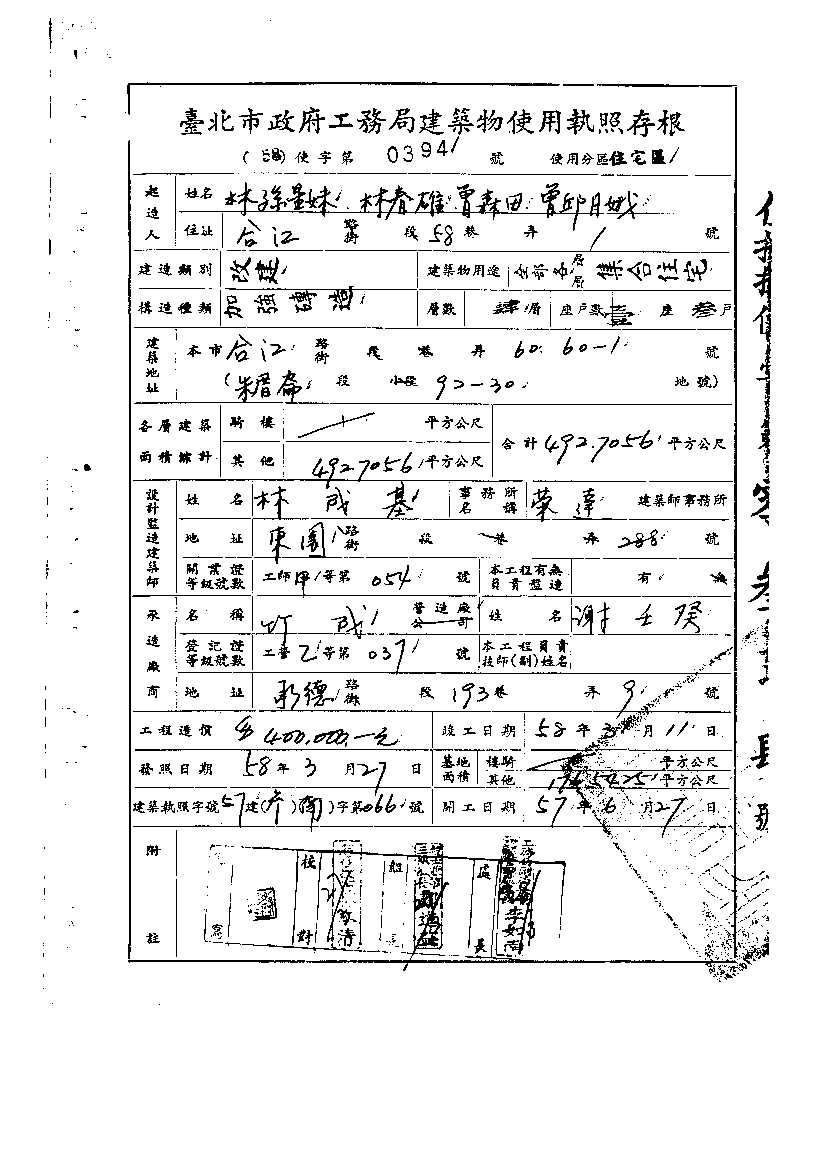 臺北市政府工務局建築物使用執照存根
(58)使字第 0394 號 使用分區住宅區
起造人 姓名 林孫量妹 林春雄 曾森田 曾邱月娥
住址 合江 路街 段 58 巷 弄 1 號
建造類別 改建 建築物用途 全部各層層 集合住宅
構造種類 加強磚造 層數 肆層 座戶數 壹座 叁戶
建築地址 本市合江 路街 段 巷 弄 60. 60-1 號
(朱厝崙 段 小段 92-30 地號)
各層建築面積總計 騎樓 平方公尺 合計 492.7056 平方公尺
其他 492.7056 平方公尺
設計監造建築師 姓名 林成基 事務所名稱 榮達 建築師事務所
地址 東園 路街 段 巷 弄 288 號
開業證等級號數 工師甲等第 054 號 本工程有無負責監造 有 無
承造廠商 名稱 竹成 營造廠公司 姓名 謝壬癸
登記證等級號數 工營乙等第 037 號 本工程負責技師(副)姓名
地址 承德 路街 段 193 巷 弄 9 號
工程造價 400,000.-元 竣工日期 58年3月11日
發照日期 58年3月27日 基地面積 騎樓 平方公尺
其他 平方公尺
建築執照字號 57建( )字第066號 開工日期 57年6月27日
附註 校對 組長 處長